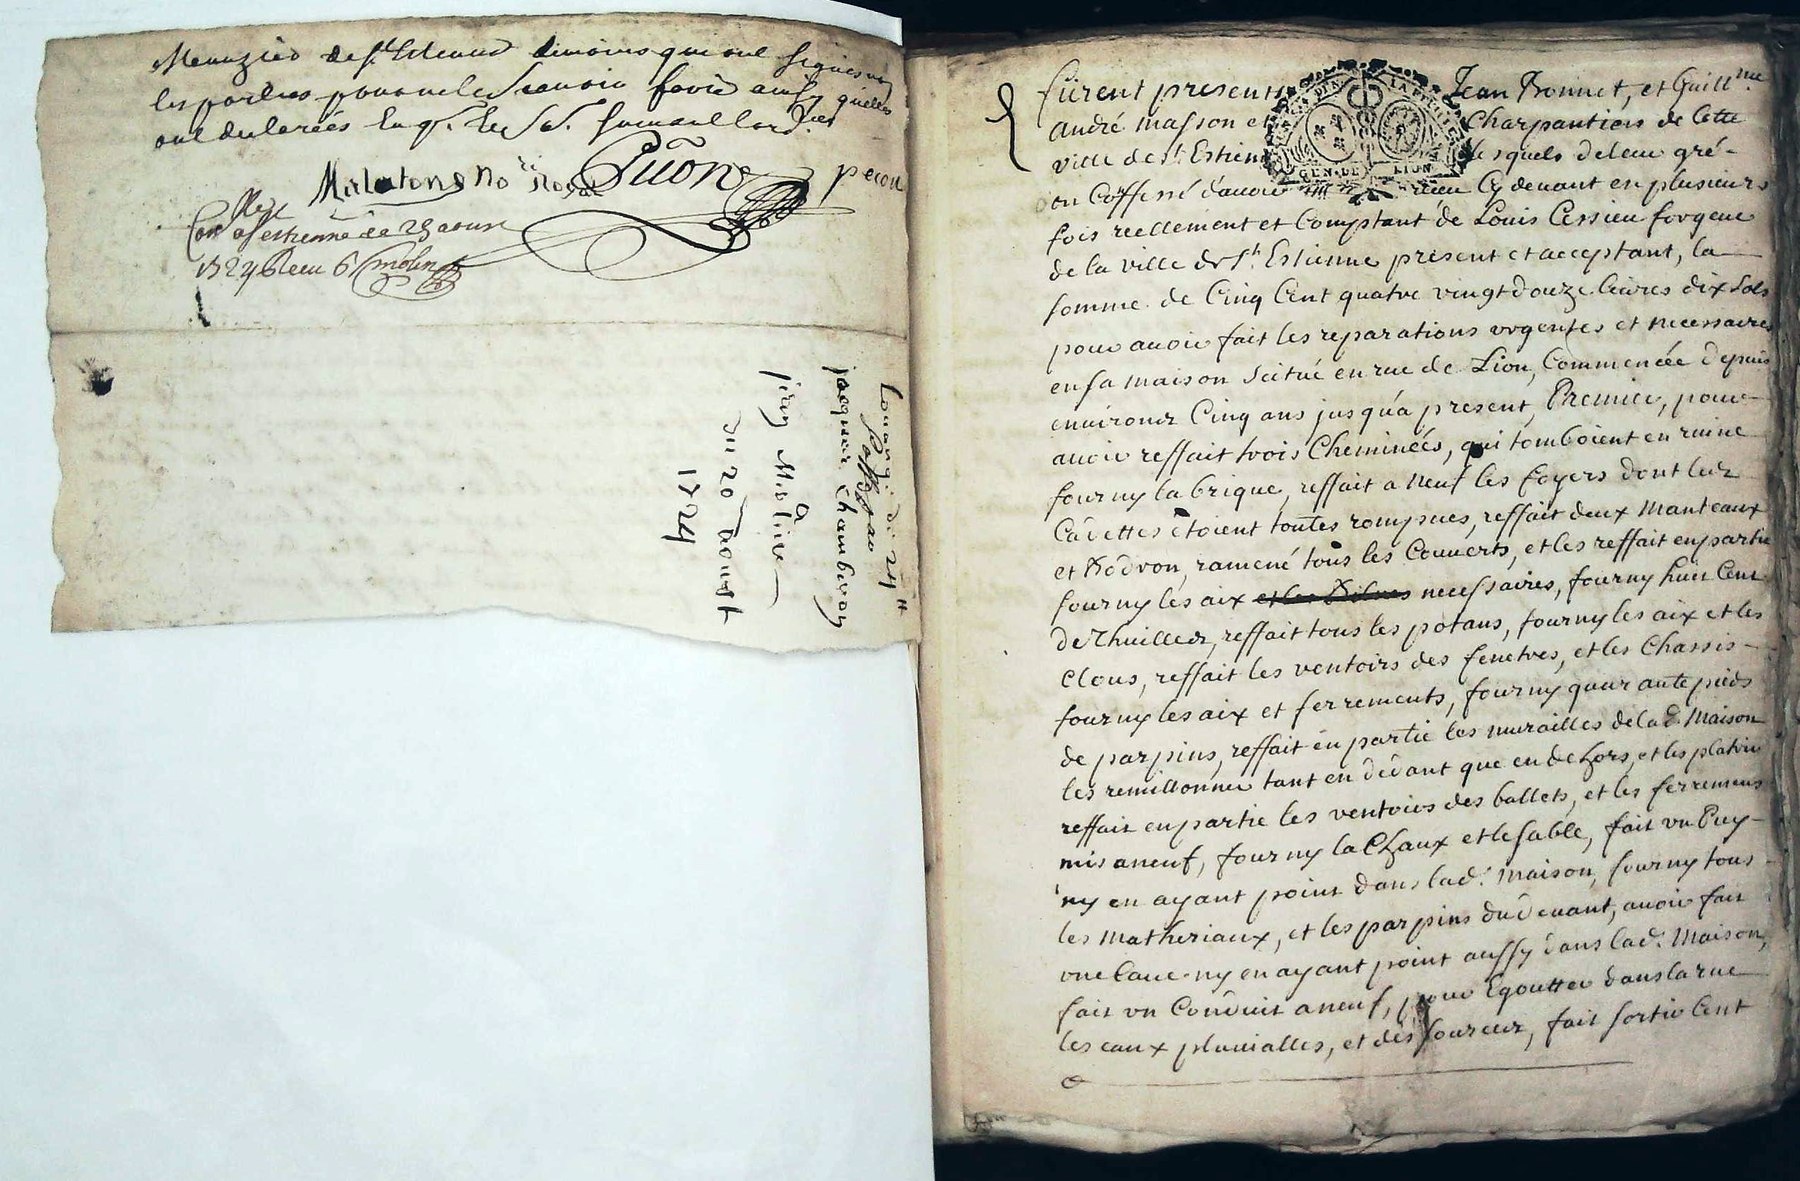 de st Estienne temoins qui ont signés
les parties pour ne le scavoir favie ainsy quelles
ont declarées Enq.
Pitton
peron
Con a st estienne ce 23 aoust
1724 Receu 6 s molin
Louange de 24 tt
jacques Chamberon
a
jean Moline
du 20 aoust
1724
furent presents Jean Bonnet, et Guill.me
andré Masson et Charpantiers de Cette
ville de st Estienne lesquels de leur gré
on Coffessé d'avoir receu Cy devant en plusieurs
fois reellement et Comptant de Louis Cessieu forgeur
de la ville de st. Estienne present et acceptant, la
somme de Cinq Cent quatre vingt douze livres dix sols
pour avoir fait les reparations urgentes et necessaires
en sa maison scitué en rue de Lion, Commencée depuis
environs Cinq ans jusqu'a present, Premier, pour
avoir reffait trois Cheminées, qui tomboient en ruine
fourny la brique, reffait a neuf les foyers dont les
Cadettes etoient toutes rompues, reffait deux Manteaux
et Bodron, ramené tous les Couverts, et les reffait en partie
fourny les aix et les necessaires, fourny huit Cent
de Thuilles, reffait tous les potans, fourny les aix et les
Clous, reffait les ventoirs des fenetres, et les Chassis
fourny les aix et ferrements, fourny quarante pieds
de parpins, reffait en partie les murailles de lad. Maison
les remillonner tant en dedant que en dehors, et les platrir
reffait en partie les ventoirs des ballets, et les ferremens
mis a neuf, fourny la Chaux et le sable, fait un Puy
ny en ayant point dans lad. maison, fourny tous
les Matheriaux, et les parpins du devant, avoir fait
une Cave ny en ayant point aussy dans lad. Maison,
fait un Conduit a neuf, pour Egoutter dans la rue
les eaux pluvialles, et des foureur, fait sortir Cent
GEN·DE LION